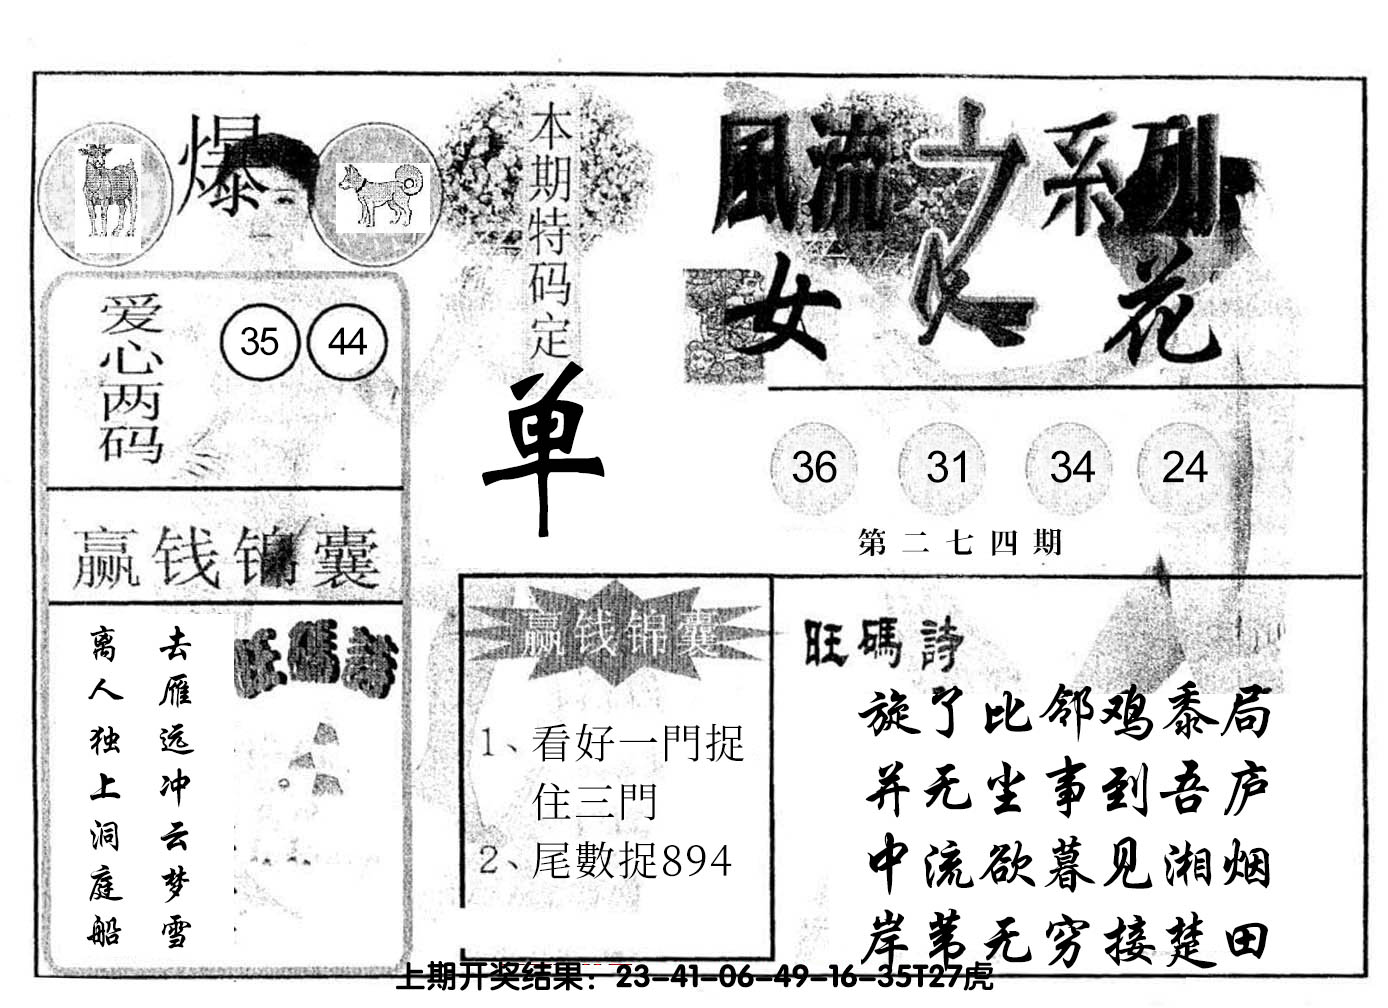 爆
爱心两码
35 44
赢钱锦囊
去雁远冲云梦雪
离人独上洞庭船
旺碼詩
本期特码定
单
風流之系列
女人花
36 31 34 24
第二七四期
赢钱锦囊
1、看好一門捉
住三門
2、尾數捉894
旺碼詩
旋了比邻鸡黍局
并无尘事到吾庐
中流欲暮见湘烟
岸苇无穷接楚田
上期开奖结果：23-41-06-49-16-35T27虎